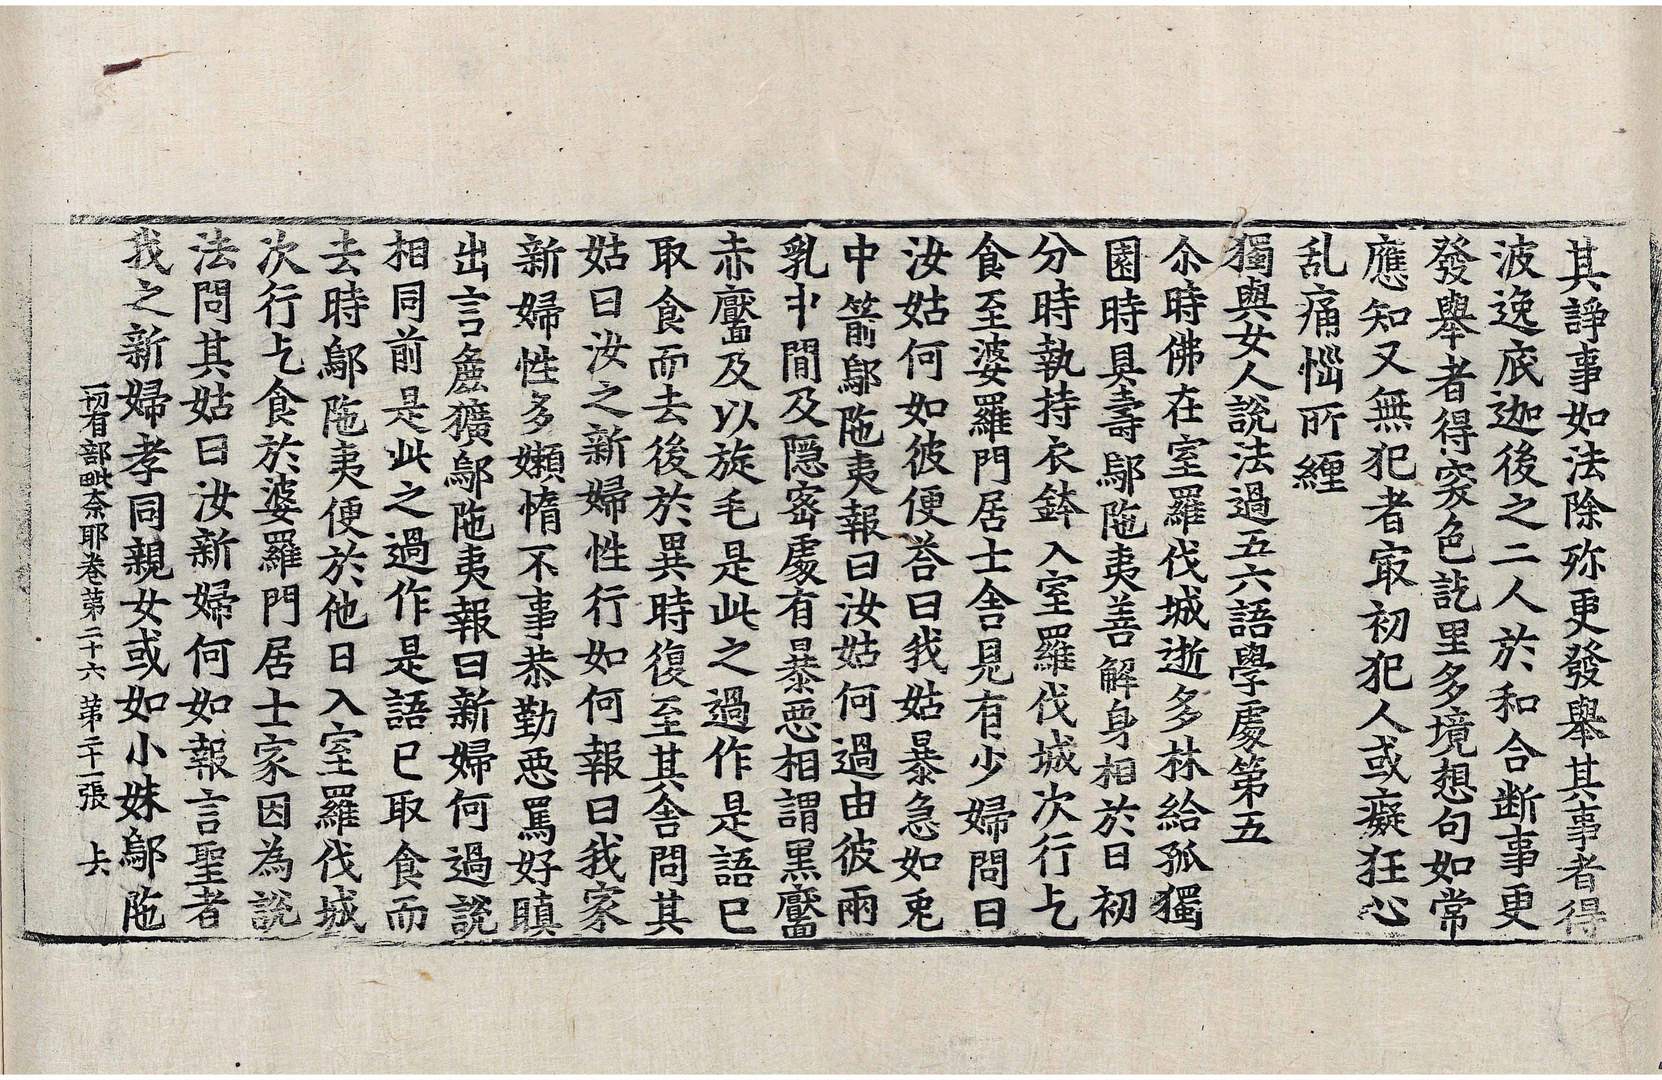 其諍事如法除弥更發舉其事者得
波逸底迦後之二人於和合断事更
發舉者得突色訖里多境想句如常
應知又無犯者㝡初犯人或癡狂心
乱痛惱所纏
獨與女人說法過五六語學處第五
尒時佛在室羅伐城逝多林給孤獨
園時具壽鄔陁夷善解身相於日初
分時執持衣鉢入室羅伐城次行乞
食至婆羅門居士舍見有少婦問曰
汝姑何如彼便荅曰我姑暴急如兎
中箭鄔陁夷報曰汝姑何過由彼兩
乳中間及隱密處有暴惡相謂黑黶
赤黶及以旋毛是此之過作是語已
取食而去後於異時復至其舍問其
姑曰汝之新婦性行如何報曰我家
新婦性多嬾惰不事恭勤惡罵好瞋
出言麁獷鄔陁夷報曰新婦何過說
相同前是此之過作是語已取食而
去時鄔陁夷便於他日入室羅伐城
次行乞食於婆羅門居士家因為說
法問其姑曰汝新婦何如報言聖者
我之新婦孝同親女或如小妹鄔陁
一切有部毗奈耶卷第二十六 第二十一張